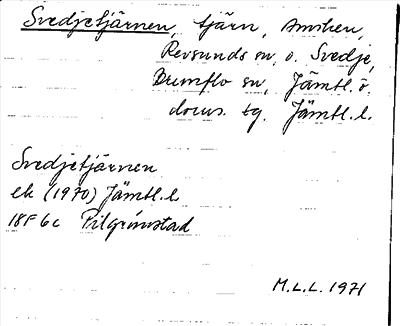 Svedjetjärnen, tjärn, Ansken,
Revsunds sn, o. Svedje,
Brunflo sn, Jämtl. ö.
doms. tg. Jämtl. l.
Svedjetjärnen
ek (1970) Jämtl. l
18F 6c Pilgrimstad
M.L.L. 1971